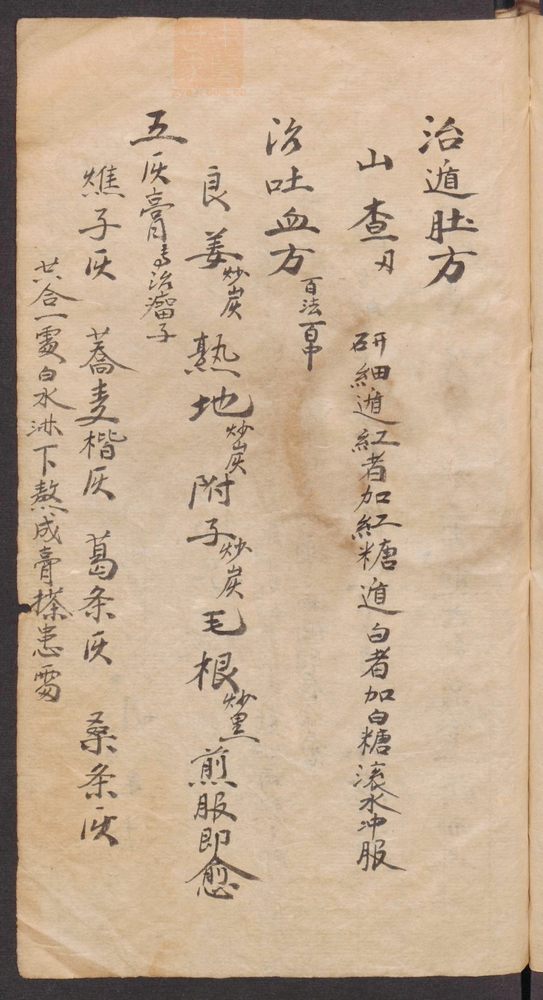 治遁肚方
山查刃 研細遁紅者加紅糖遁白者加白糖滚水冲服
治吐血方 百法百中
良姜炒炭 熟地炒炭 附子炒炭 毛根炒黑 煎服即愈
五灰膏专治瘤子
燋子灰 蕎麦楷灰 葛条灰 桑条灰
共合一處白水淋下熬成膏搽患處